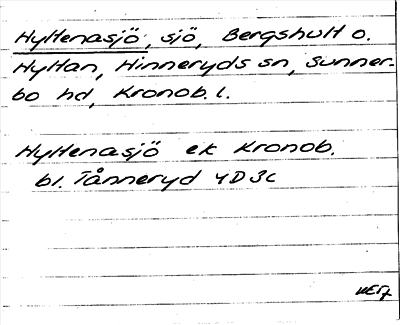 Hyltenasjö, sjö, Bergshult o.
Hyltan, Hinneryds sn, Sunner-
bo hd, Kronob. l.
Hyltenasjö ek Kronob.
bl. Tånneryd 4D3c